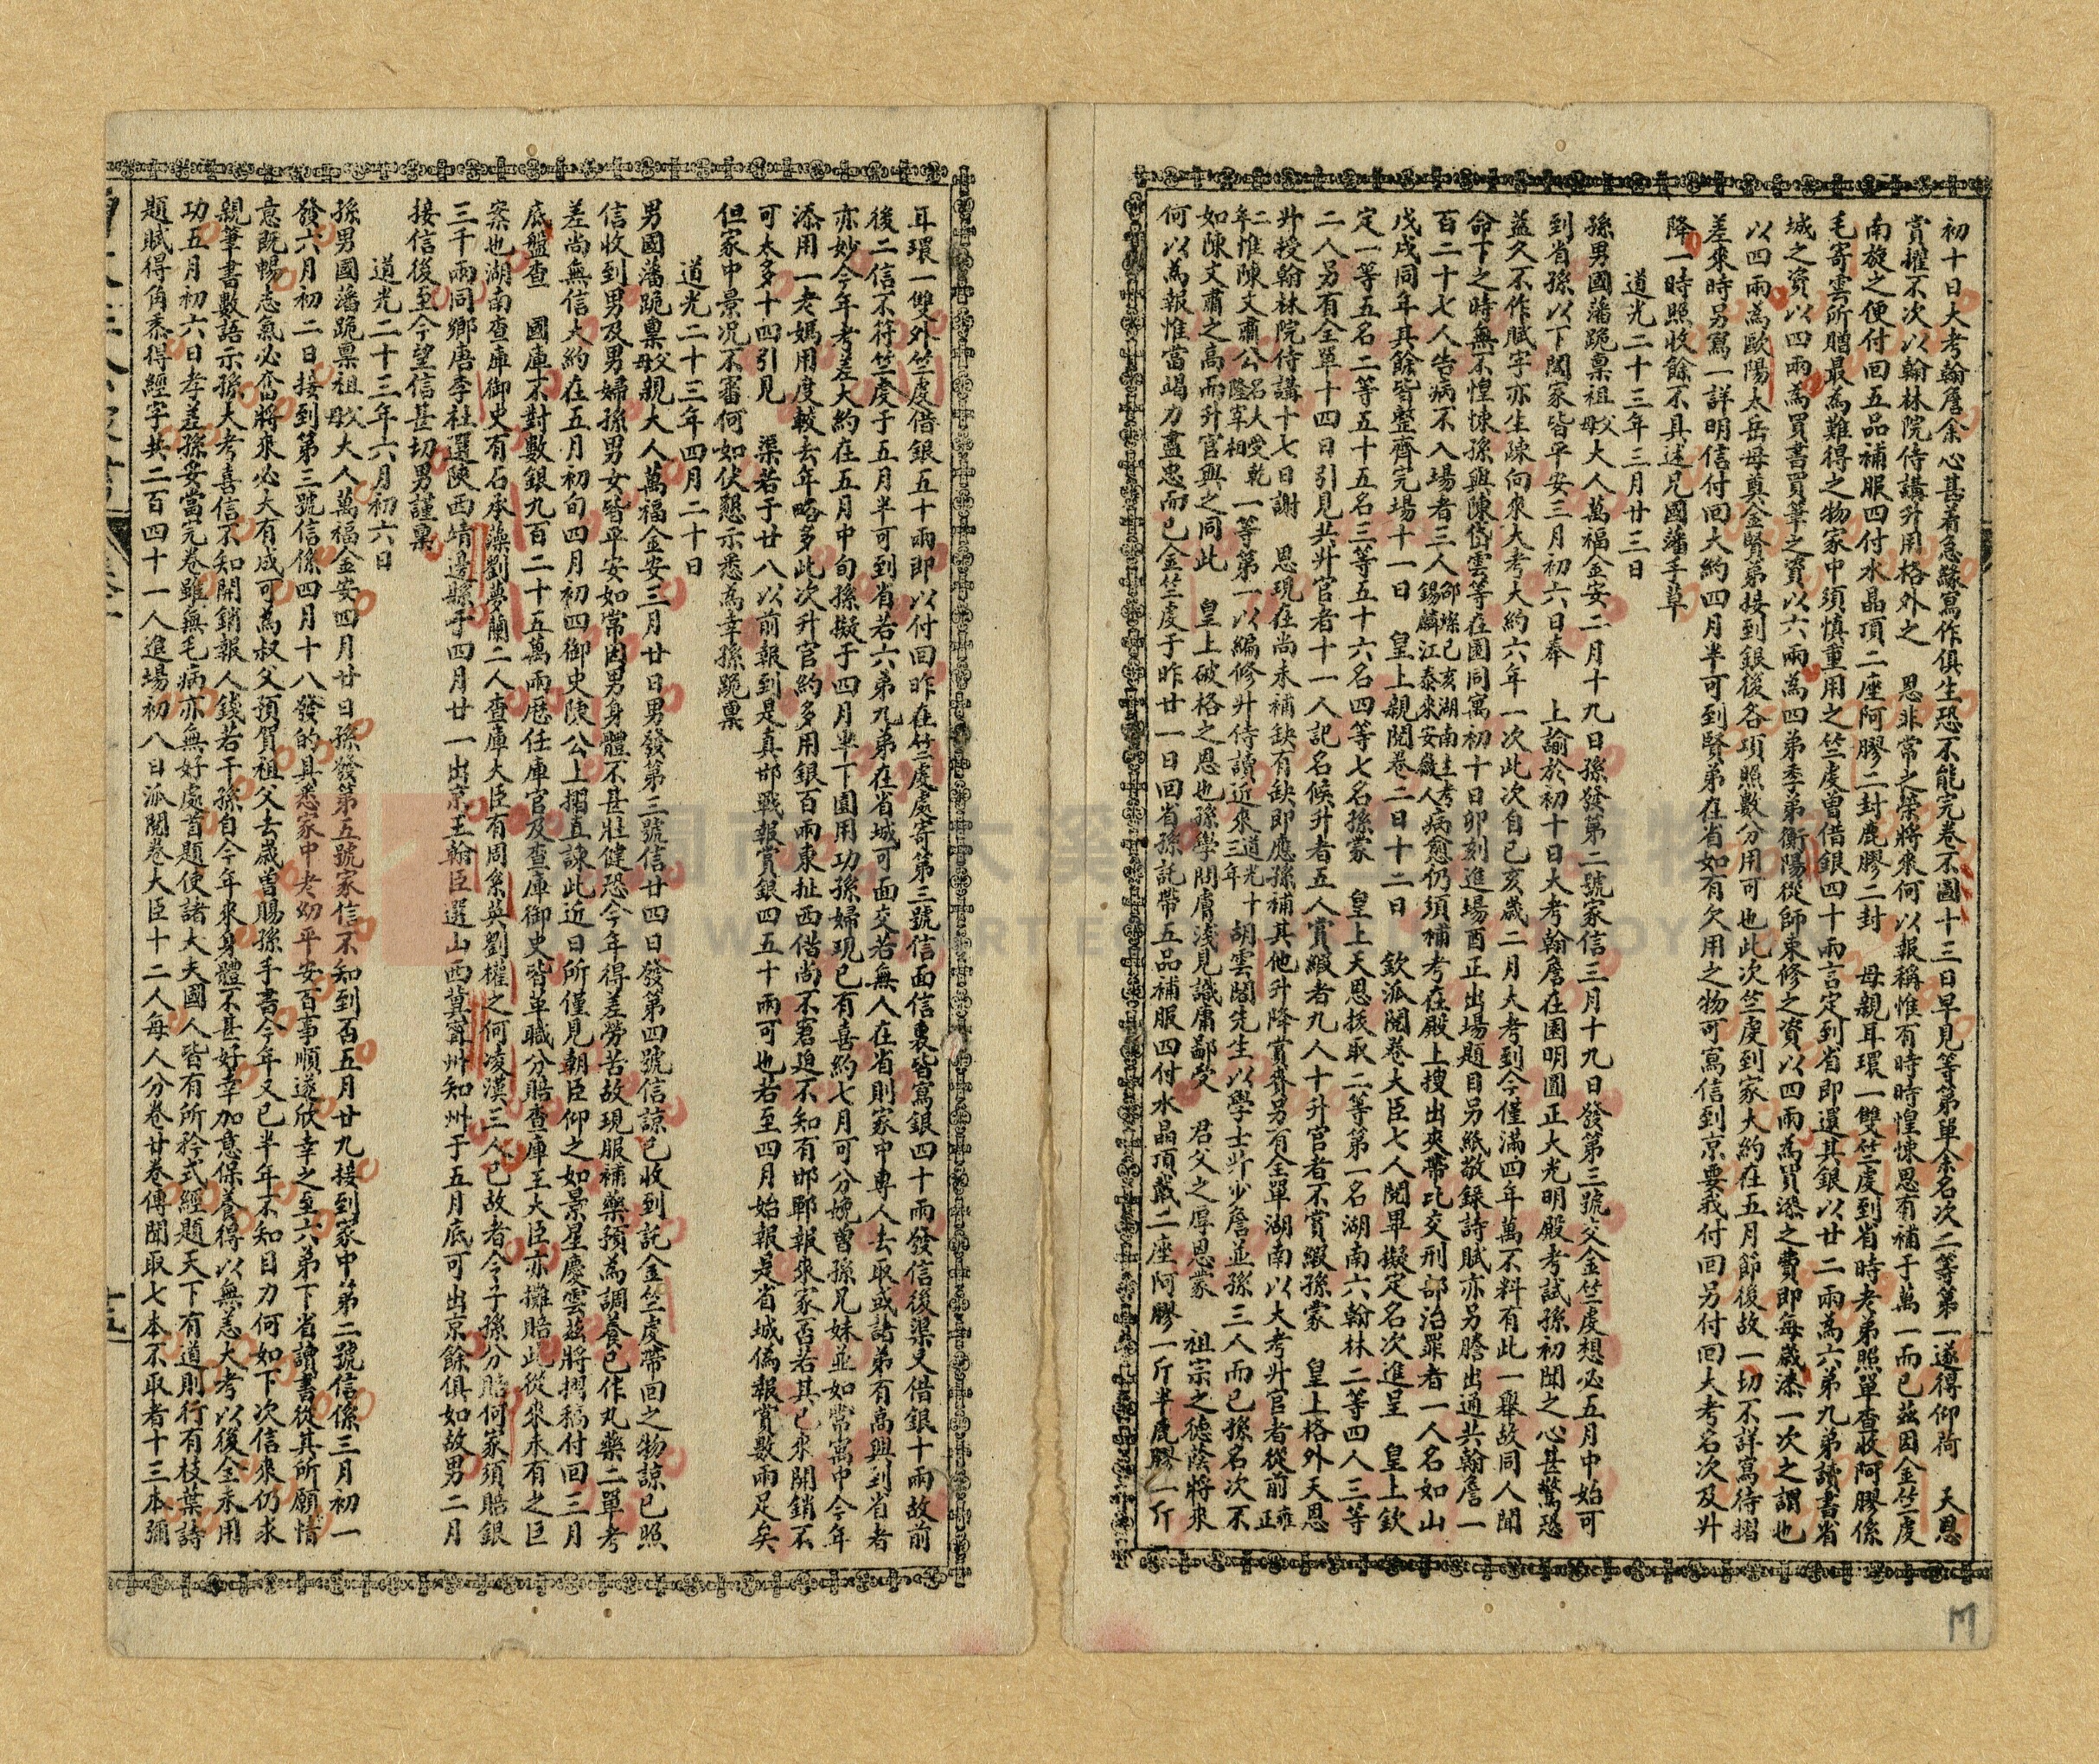 初十日大考翰詹余心甚着急緣寫作俱生恐不能完卷不圖十三日早見等第單余名次二等第一遂得仰荷　天恩
賞擢不次以翰林院侍講升用格外之　恩非常之榮將來何以報稱惟有時時惶悚思有補于萬一而已茲因金竺虔
南旋之便付回五品補服四付水晶頂二座阿膠二封鹿膠二封　母親耳環一雙竺虔到省時老弟照單查收阿膠係
毛寄雲所贈最為難得之物家中須慎重用之竺虔曾借銀四十兩言定到省即還其銀以廿二兩為六弟九弟讀書省
城之資以四兩為買書買筆之資以六兩為四弟季弟衡陽從師束修之資以四兩為買漆之費即每歲漆一次之謂也
以四兩為歐陽太岳母奠金賢弟接到銀後各項照數分用可也此次竺虔到家大約在五月節後故一切不詳寫待摺
差來時另寫一詳明信付回大約四月半可到賢弟在省如有欠用之物可寫信到京要我付回另付回大考名次及升
降一時照收餘不具述兄國藩手草
道光二十三年三月廿三日
孫男國藩跪稟祖父母大人萬福金安二月十九日孫發第二號家信三月十九日發第三號交金竺虔想必五月中始可
到省孫以下闔家皆平安三月初六日奉　上諭於初十日大考翰詹在園明圓正大光明殿考試孫初聞之心甚驚恐
蓋久不作賦字亦生疎向來大考大約六年一次此次自己亥歲二月大考到今僅滿四年萬不料有此一舉故同人聞
命下之時無不惶悚孫與陳岱雲等在園同寓初十日卯刻進場酉正出場題目另紙敬錄詩賦亦另謄出通共翰詹一
百二十七人告病不入場者三人邵燦己亥湖南主考錫麟江泰來安徽人病愈仍須補考在殿上搜出夾帶比交刑部治罪者一人名如山
戊戌同年其餘皆整齊完場十一日　皇上親閱卷二日十二日　欽派閱卷大臣七人閱畢擬定名次進呈　皇上欽
定一等五名二等五十五名三等五十六名四等七名孫蒙　皇上天恩拔取二等第一名湖南六翰林二等四人三等
二人另有全單十四日引見共升官者十一人記名候升者五人賞緞者九人十升官者不賞緞孫蒙　皇上格外天恩
升授翰林院侍講十七日謝　恩現在尚未補缺有缺即應孫補其他升降賞賚另有全單湖南以大考升官者從前雍正
二年惟陳文肅公名大受乾隆宰相一等第一以編修升侍讀近來道光十三年胡雲閣先生以學士升少詹並孫三人而已孫名次不
如陳文肅之高而升官與之同此　皇上破格之恩也孫學問膚淺見識庸鄙受　君父之厚恩蒙　祖宗之德蔭將來
何以為報惟當竭力盡忠而已金竺虔于昨廿一日回省孫託帶五品補服四付水晶頂戴二座阿膠一斤半鹿膠一斤
耳環一雙外竺虔借銀五十兩即以付回昨在竺虔處寄第三號信面信裏皆寫銀四十兩發信後渠又借銀十兩故前
後二信不符竺虔于五月半可到省若六弟九弟在省城可面交若無人在省則家中專人去取或諸弟有高興到省者
亦妙今年考差大約在五月中旬孫擬于四月半下園用功孫婦現已有喜約七月可分娩曾孫兄妹並如常寓中今年
添用一老媽用度較去年略多此次升官約多用銀百兩東扯西借尚不窘迫不知有邯鄲報來家否若其已來開銷不
可太多十四引見　渠若于廿八以前報到是真邯戰報賞銀四五十兩可也若至四月始報是省城偽報賞數兩足矣
但家中景况不審何如伏懇示悉為幸孫跪稟
道光二十三年四月二十日
男國藩跪稟父母親大人萬福金安三月廿日男發第三號信廿四日發第四號信諒已收到託金竺虔帶回之物諒已照
信收到男及男婦孫男女皆平安如常因男身體不甚壯健恐今年得差勞苦故現服補藥預為調養已作丸藥二單考
差尚無信大約在五月初旬四月初四御史陳公上摺直諫此近日所僅見朝臣仰之如景星慶雲茲將摺稿付回三月
底盤查　國庫不對數銀九百二十五萬兩歷任庫官及查庫御史皆革職分賠查庫王大臣亦攤賠此從來未有之巨
案也湖南查庫御史有石承藻劉夢蘭二人查庫大臣有周系英劉權之何凌漢三人已故者令子孫分賠何家須賠銀
三千兩同鄉唐李杜選陝西靖邊縣于四月廿一出京王翰臣選山西冀甯州知州于五月底可出京餘俱如故男二月
接信後至今望信甚切男謹稟
道光二十三年六月初六日
孫男國藩跪稟祖父母大人萬福金安四月廿日孫發第五號家信不知到否五月廿九接到家中第二號信係三月初一
發六月初二日接到第三號信係四月十八發的具悉家中老幼平安百事順遂欣幸之至六弟下省讀書從其所願情
意既暢志氣必奮將來必大有成可為叔父預賀祖父去歲曾賜孫手書今年又已半年不知目力何如下次信來仍求
親筆書數語示孫大考喜信不知開銷報人錢若干孫自今年來身體不甚好幸加意保養得以無恙大考以後全未用
功五月初六日考差孫妥當完卷雖無毛病亦無好處首題使諸大夫國人皆有所矜式經題天下有道則行有枝葉詩
題賦得角黍得經字共二百四十一人進場初八日派閱卷大臣十二人每人分卷廿卷傳聞取七本不取者十三本彌